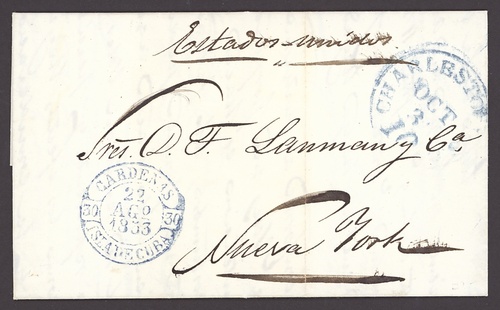 Estados-unidos
CHARLESTO
OCT
3
10
Sres. D. F. Lanman y Ca
CARDENAS
30 30
22
AGO
1853
ISLA DE CUBA
Nueva York